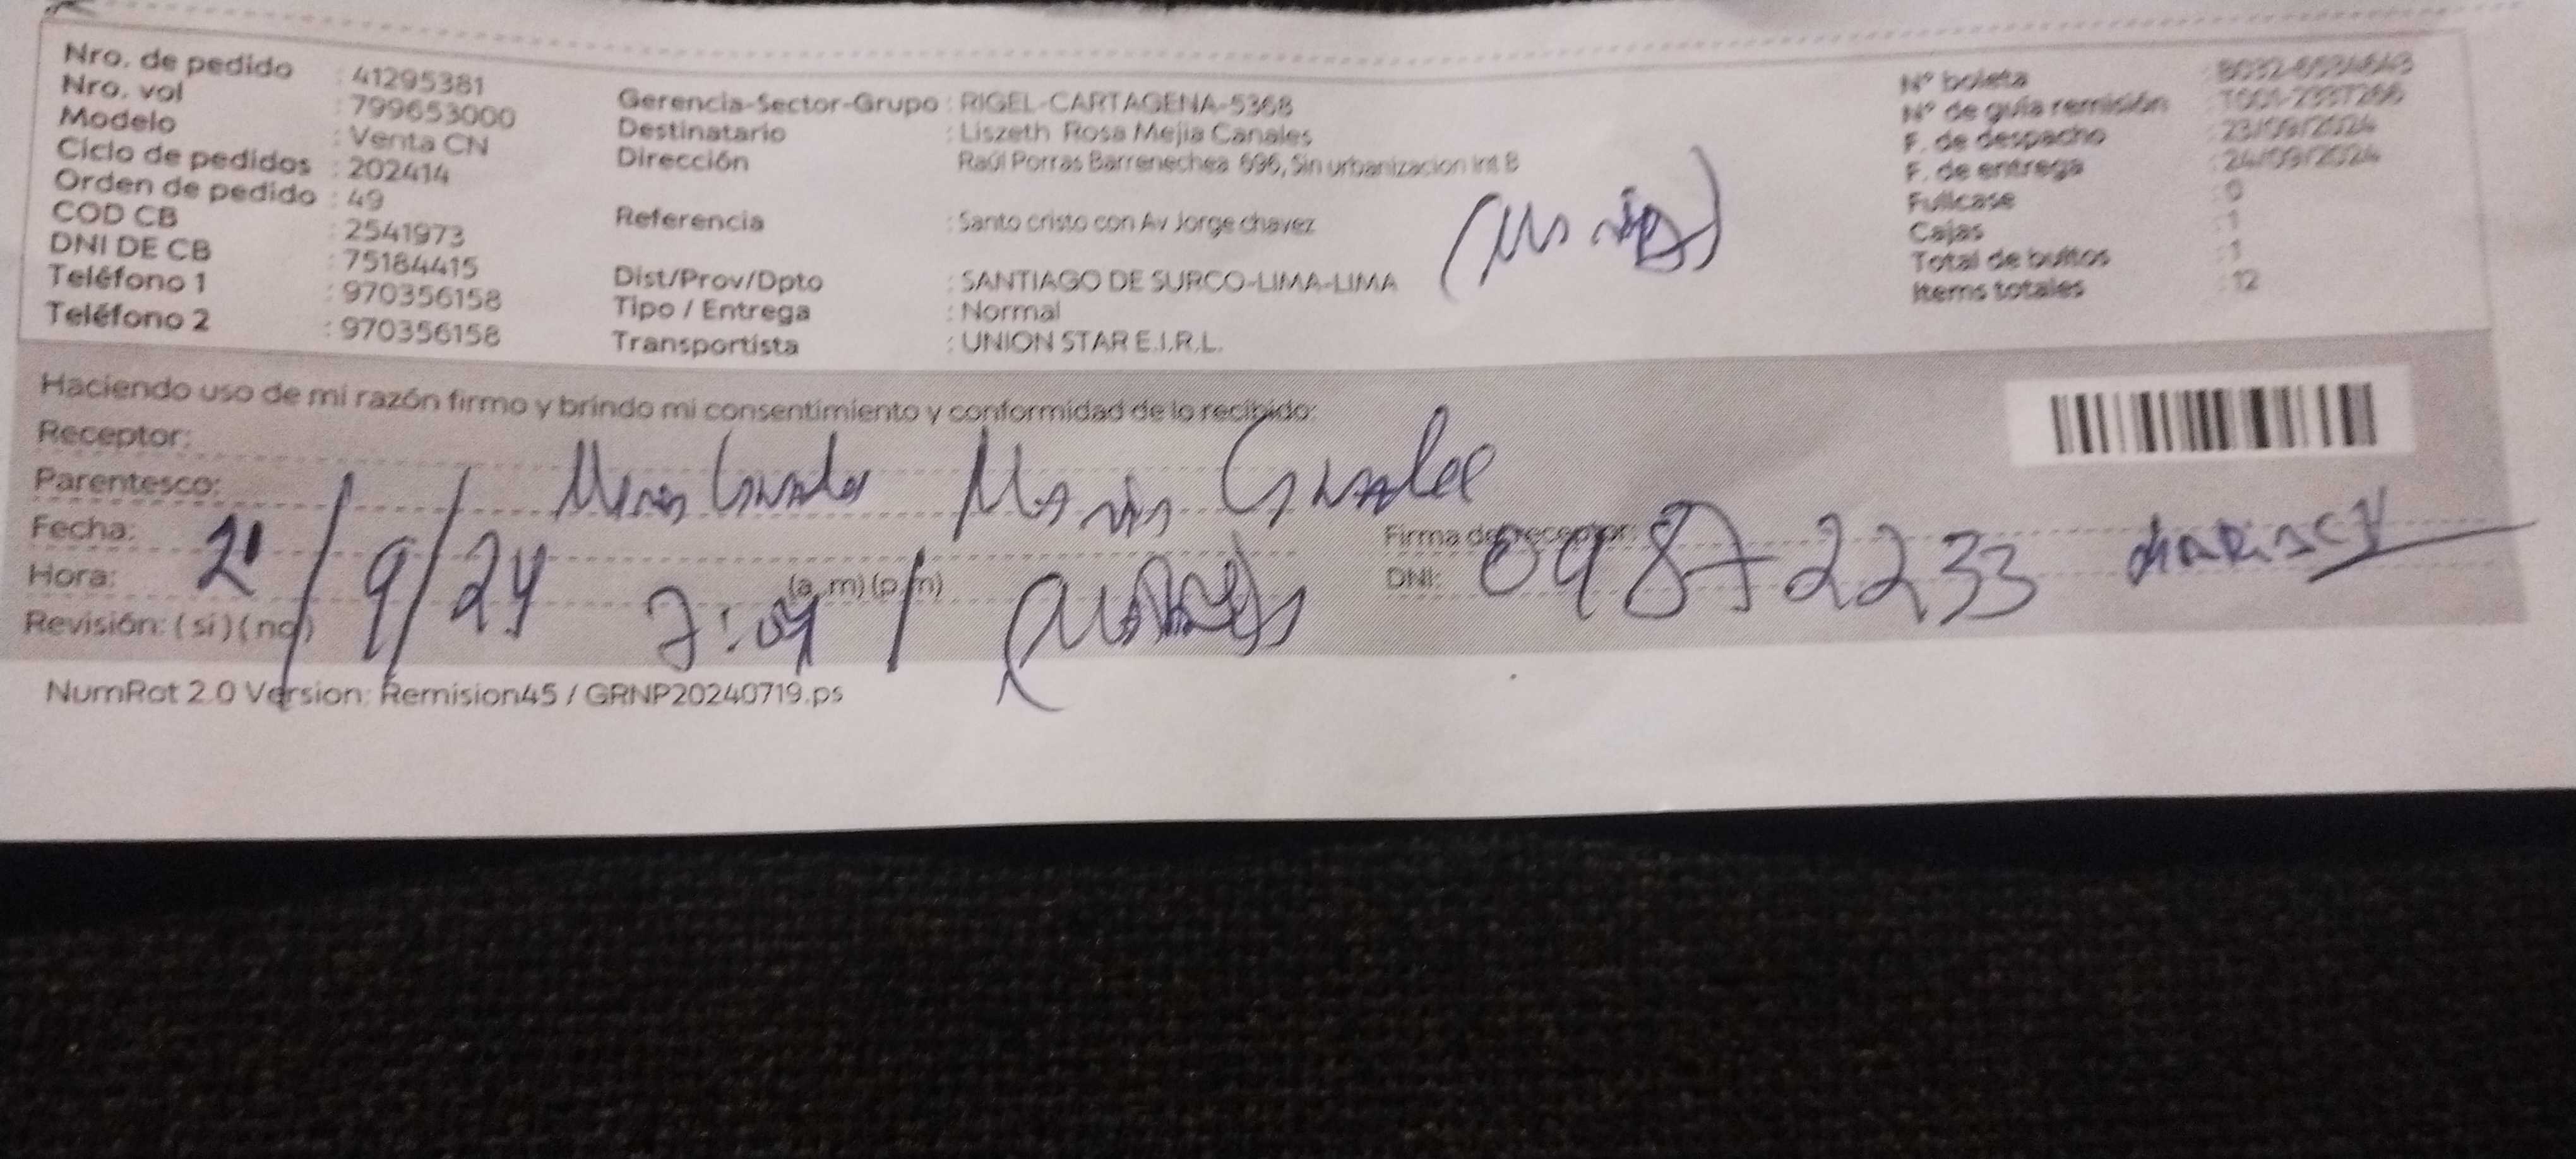 Nro. de pedido : 41295381
Nro. vol : 799653000
Modelo : Venta CN
Ciclo de pedidos : 202414
Orden de pedido : 49
COD CB : 2541973
DNI DE CB : 75184415
Teléfono 1 : 970356158
Teléfono 2 : 970356158
Gerencia-Sector-Grupo : RIGEL-CARTAGENA-5368
Destinatario : Liszeth Rosa Mejia Canales
Dirección Raúl Porras Barrenechea 696, Sin urbanizacion Int B
Referencia : Santo cristo con Av Jorge chavez
Dist/Prov/Dpto : SANTIAGO DE SURCO-LIMA-LIMA
Tipo / Entrega : Normal
Transportista : UNION STAR E.I.R.L.
N° boleta
N° de guía remisión
F. de despacho : 23/09/2024
F. de entrega : 24/09/2024
Fullcase : 0
Cajas : 1
Total de bultos : 1
Items totales : 12
Haciendo uso de mi razón firmo y brindo mi consentimiento y conformidad de lo recibido:
Receptor:
Parentesco:
Fecha: /9/24
Hora: (a.m) (p.m)
Revisión: (si) (no)
Firma de receptor:
DNI: 09872233
NumRot 2.0 Version: Remision45 / GRNP20240719.ps